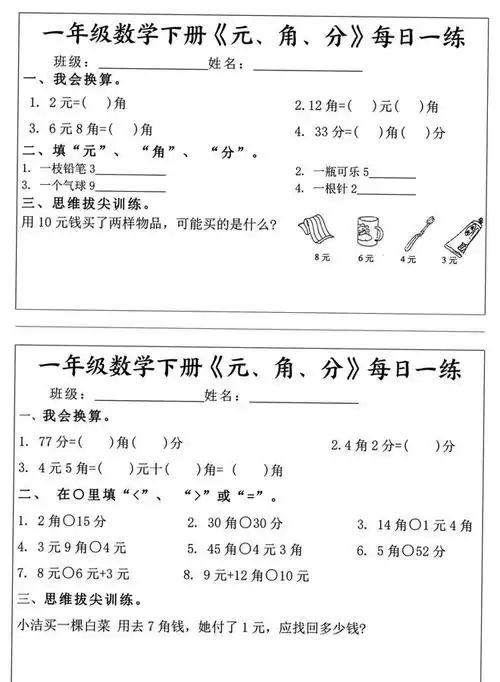 一年级数学下册《元、角、分》每日一练
班级：______________姓名：______________
一、我会换算。
1. 2元=(    )角    2.12角=(    )元(    )角
3. 6元8角=(    )角    4. 33分=(    )角(    )分
二、填“元”、 “角”、 “分”。
1. 一枝铅笔3__________    2. 一瓶可乐5________
3. 一个气球9__________    4. 一根针2________
三、思维拔尖训练。
用10元钱买了两样物品，可能买的是什么?
8元 6元 4元 3元
一年级数学下册《元、角、分》每日一练
班级：______________姓名：______________
一、我会换算。
1. 77分=(    )角(    )分    2.4角2分=(    )分
3. 4元5角=(    )元十(    )角= (    )角
二、 在〇里填“<”、 “>”或“=”。
1. 2角〇15分    2. 30角〇30分    3. 14角〇1元4角
4. 3元9角〇4元    5. 45角〇4元3角    6. 5角〇52分
7. 8元〇6元+3元    8. 9元+12角〇10元
三、思维拔尖训练。
小洁买一棵白菜 用去7角钱，她付了1元，应找回多少钱?